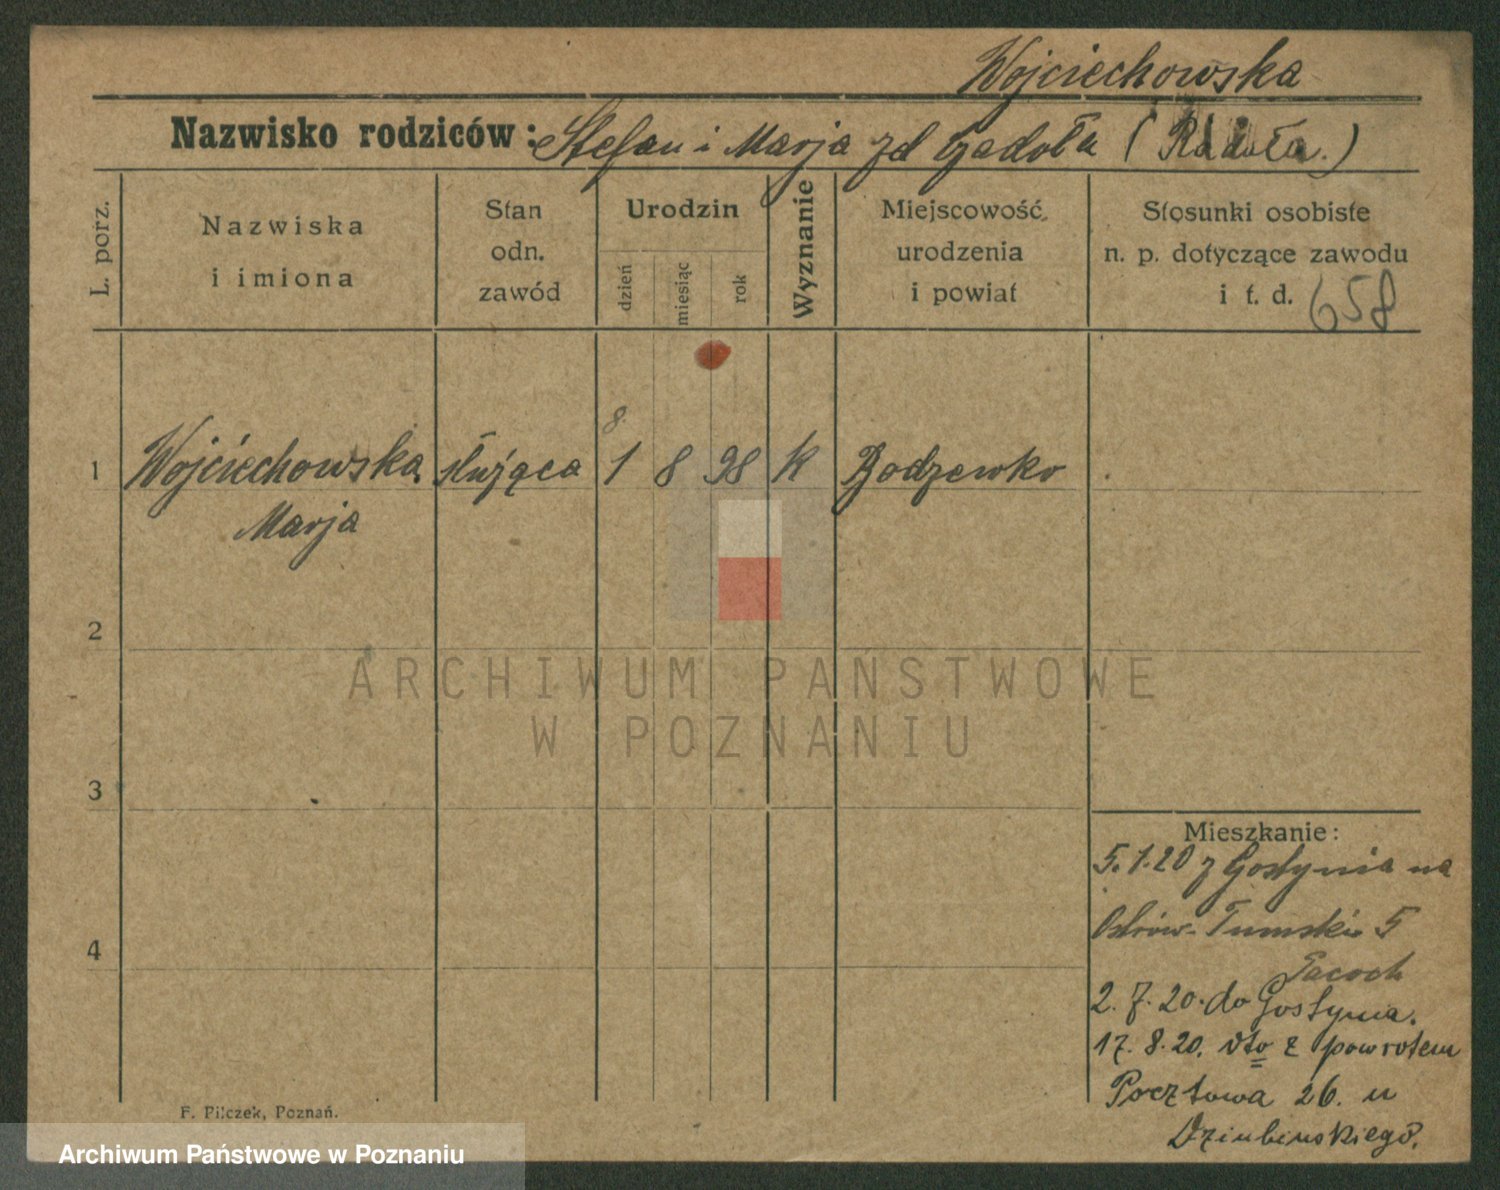 Wojciechowska
Nazwisko rodziców: Stefan i Marja zd (Radoła.)
L. porz.
Nazwiska
i imiona
Stan
odn.
zawód
Urodzin
dzień
miesiąc
rok
Wyznanie
Miejscowość
urodzenia
i powiat
Stosunki osobiste
n. p. dotyczące zawodu
i t. d. 658
8.
1 Wojciechowska służąca 1 8 98 k Bodzewko
Marja
2
3
4
Mieszkanie:
5.1.20 z Gostynia na
Ostrów-Tumski 5
2.7.20. do Gostynia.
17.8.20. dto z powrotem
Pocztowa 26. u
Dziubinskiego.
F. Pilczek, Poznań.
ARCHIWUM PAŃSTWOWE
W POZNANIU
Archiwum Państwowe w Poznaniu